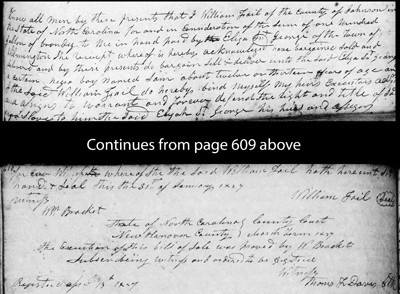 Know all men by these present that I William Fail of the County of Johnson in
the State of North Carolina for and in Consideration of the sum of one hundred
of to me in hand paid by the Elija St. George of the Town of
Wilmington the receipt where of is hereby acknowledged have bargained Sold and
and by these presents do bargain Sell & deliver unto the Said Elija St. George
certain negro boy named Sam about twelve or thirteen years of age and
the Said William Fail do hereby bind myself my heirs Executors
and assigns to warrant and forever defend the right and title of
to him the Said Elijah St. George his heirs and assigns
Continues from page 609 above
for ever where of I the Said William Fail hath hereunto set
hand & Seal this the 31st of January 1827
Witness
William Fail Seal
Wm Bracket
State of North Carolina County Court
New Hanover County March Term 1827
the Execution of this bill of Sale was proved by W Bracket
Subscribing witness and ordered to be registered
Witness
Registered April 1827
Thomas F. Davis Clk